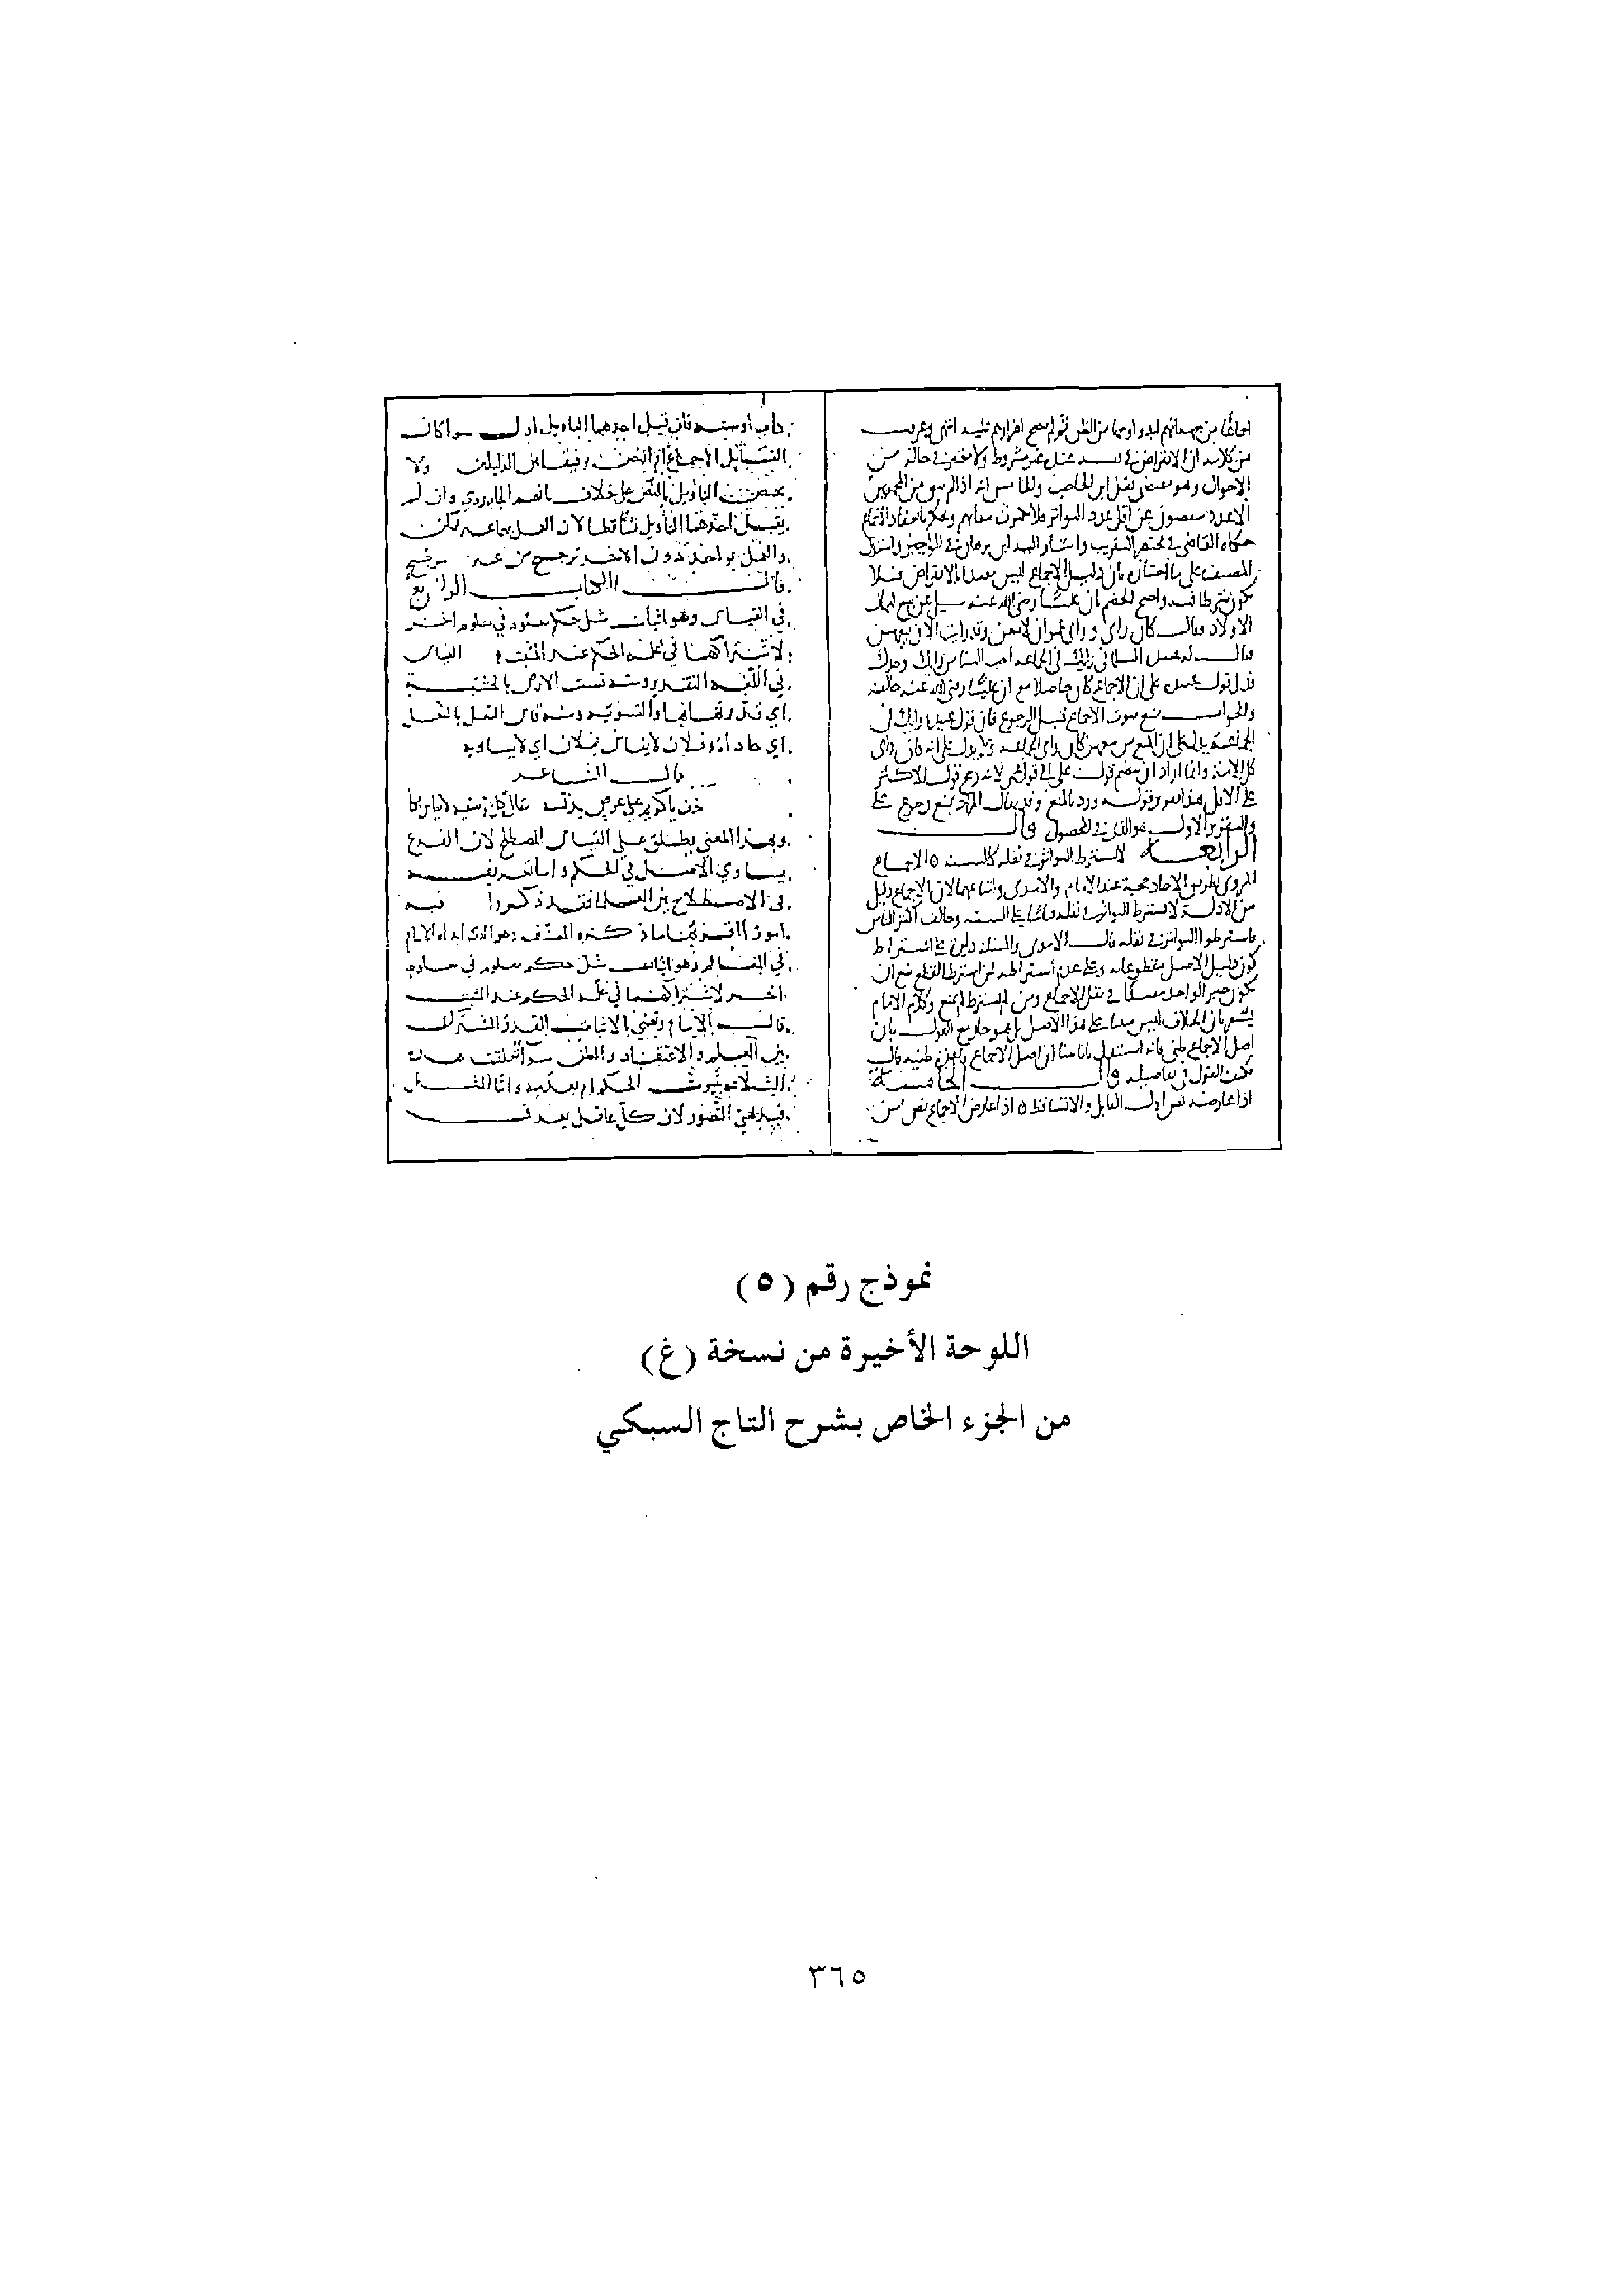 من كلامه ان الانقراض في
الاحوال وهو مقتضى نقل ابن الحاجب والخامس انه اذا لم يبق من المجمعين
الا عدد ينقصون عن اقل عدد التواتر فلا
حكاه القاضي في مختصر التقريب واشار اليه ابن برهان في الوجيز واستدل
المصنف على ما اختاره بان دليل الاجماع ليس مقيدا بالانقراض فلا
يكون شرطا فيه واحتج الخصم بان عليا رضي الله عنه سئل عن بيع امهات
الاولاد فقال كان رايي وراي عمر ان لا يبعن وقد رايت الان بيعهن
فقال له عبيدة السلماني رايك في الجماعة احب الينا من رايك وحدك
فدل قول عبيدة على ان الاجماع كان حاصلا مع ان عليا رضي الله عنه خالفه
والجواب منع ثبوت الاجماع قبل الرجوع فان قول عبيدة رايك في
كل الامة وانما اراد ان ينضم قول علي الى قول عمر لانه رجح قول الاكثر
على الاقل
والتقرير الاول هو الذي في المحصول قال
الرابعة لا يشترط التواتر في نقله كالسنة ٥ الاجماع
المروي بطريق الاحاد حجة عند الامام والامدي واتباعهما لان الاجماع دليل
من الادلة فلا يشترط التواتر في نقله قياسا على السنة وخالف اكثر الناس
فاشترطوا التواتر في نقله قال الامدي والمسئلة دايرة على اشتراط
كون دليل الاصل مقطوعا به وعلى عدم اشتراطه فمن اشترط القطع منع ان
يكون خبر الواحد مفيدا في نقل الاجماع ومن لم يشترط لم يمنع وكلام الامام
يشعر بان الخلاف ليس مبنيا على هذا الاصل بل هو جار مع القول بان
اصل الاجماع ظني فانه استدل بانا بينا ان اصل الاجماع قاعدة ظنية فكيف
القول في تفاصيله قال الخامسة
اذا عارضه نص اول القابل والا تساقطا ٥ اذا عارض الاجماع نص من
كتاب او سنة فان قبل احدهما التاويل اول سوا كان
القابل الاجماع او النص توفيقا بين الدليلين ولا
يختص التاويل بالنص على خلاف ما فهم الجاربردي وان لم
يقبل احدهما التاويل تساقطا لان العمل بهما غير ممكن
والعمل بواحد دون الاخر ترجيح من غير مرجح
قال الكتاب الرابع
في القياس وهو اثبات مثل حكم معلوم في معلوم اخر
لاشتراكهما في علة الحكم عند المثبت ٥ القياس
في اللغة التقدير ومنه قست الارض بالخشبة
اي قدرتها بها والتسوية ومنه قاس النعل بالنعل
اي حاذاه وفلان لا يقاس بفلان اي لا يساويه
قال الشاعر
وبهذا المعنى يطلق على القياس المصطلح لان الفرع
يساوي الاصل في الحكم واما تعريفه
في الاصطلاح بين العلما فقد ذكروا فيه
امورا اقربها ما ذكره المصنف وهو الذي ابداه الامام
في المعالم وهو اثبات مثل حكم معلوم في معلوم
اخر لاشتراكهما في علة الحكم عند المثبت
قال الامام ونعني بالاثبات القدر المشترك
بين العلم والاعتقاد والظن سوا تعلقت هذه
الثلاثة بثبوت الحكم ام بعدمه واما المثل
فبديهي التصور لان كل عاقل يعرف
نموذج رقم (٥)
اللوحة الأخيرة من نسخة (غ)
من الجزء الخاص بشرح التاج السبكي
٣٦٥